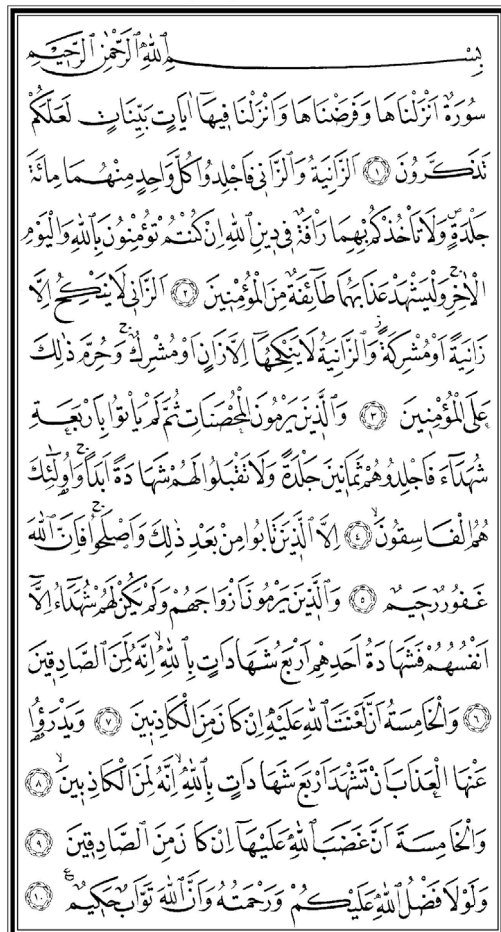 بِسْمِ اللّٰهِ الرَّحْمٰنِ الرَّحٖيمِ
سُورَةٌ اَنْزَلْنَاهَا وَفَرَضْنَاهَا وَاَنْزَلْنَا فٖيهَٓا اٰيَاتٍ بَيِّنَاتٍ لَعَلَّكُمْ
تَذَكَّرُونَ ﴿١﴾ اَلزَّانِيَةُ وَالزَّانٖي فَاجْلِدُوا كُلَّ وَاحِدٍ مِنْهُمَا مِائَةَ
جَلْدَةٍۖ وَلَا تَأْخُذْكُمْ بِهِمَا رَأْفَةٌ فٖي دٖينِ اللّٰهِ اِنْ كُنْتُمْ تُؤْمِنُونَ بِاللّٰهِ وَالْيَوْمِ
الْاٰخِرِۚ وَلْيَشْهَدْ عَذَابَهُمَا طَٓائِفَةٌ مِنَ الْمُؤْمِنٖينَ ﴿٢﴾ اَلزَّانٖي لَا يَنْكِحُ اِلَّا
زَانِيَةً اَوْ مُشْرِكَةًؗ وَالزَّانِيَةُ لَا يَنْكِحُهَٓا اِلَّا زَانٍ اَوْ مُشْرِكٌۚ وَحُرِّمَ ذٰلِكَ
عَلَى الْمُؤْمِنٖينَ ﴿٣﴾ وَالَّذٖينَ يَرْمُونَ الْمُحْصَنَاتِ ثُمَّ لَمْ يَأْتُوا بِاَرْبَعَةِ
شُهَدَٓاءَ فَاجْلِدُوهُمْ ثَمَانٖينَ جَلْدَةً وَلَا تَقْبَلُوا لَهُمْ شَهَادَةً اَبَداًۚ وَاُو۬لٰٓئِكَ
هُمُ الْفَاسِقُونَۙ ﴿٤﴾ اِلَّا الَّذٖينَ تَابُوا مِنْ بَعْدِ ذٰلِكَ وَاَصْلَحُواۚ فَاِنَّ اللّٰهَ
غَفُورٌ رَحٖيمٌ ﴿٥﴾ وَالَّذٖينَ يَرْمُونَ اَزْوَاجَهُمْ وَلَمْ يَكُنْ لَهُمْ شُهَدَٓاءُ اِلَّٓا
اَنْفُسُهُمْ فَشَهَادَةُ اَحَدِهِمْ اَرْبَعُ شَهَادَاتٍ بِاللّٰهِۙ اِنَّهُ لَمِنَ الصَّادِقٖينَ
﴿٦﴾ وَالْخَامِسَةُ اَنَّ لَعْنَتَ اللّٰهِ عَلَيْهِ اِنْ كَانَ مِنَ الْكَاذِبٖينَ ﴿٧﴾ وَيَدْرَؤُا
عَنْهَا الْعَذَابَ اَنْ تَشْهَدَ اَرْبَعَ شَهَادَاتٍ بِاللّٰهِۙ اِنَّهُ لَمِنَ الْكَاذِبٖينَۙ ﴿٨﴾
وَالْخَامِسَةَ اَنَّ غَضَبَ اللّٰهِ عَلَيْهَٓا اِنْ كَانَ مِنَ الصَّادِقٖينَ ﴿٩﴾
وَلَوْلَا فَضْلُ اللّٰهِ عَلَيْكُمْ وَرَحْمَتُهُ وَاَنَّ اللّٰهَ تَوَّابٌ حَكٖيمٌ ﴿١٠﴾